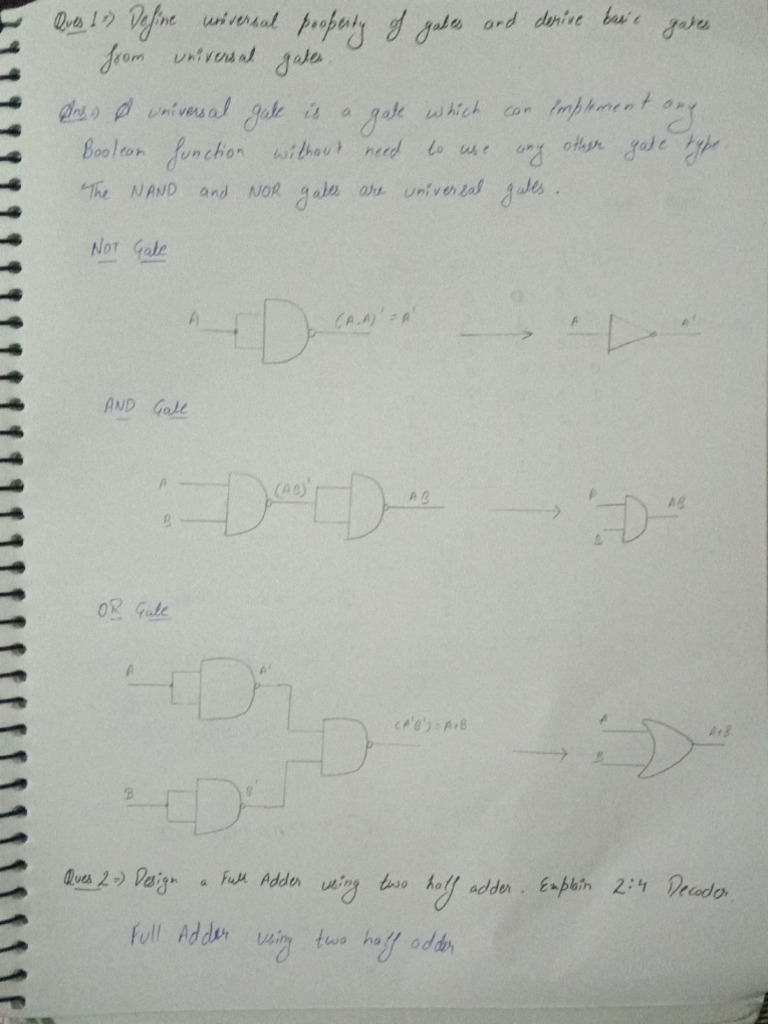 Ques 1 => Define universal property of gates and derive basic gates
from universal gates.
Ans => A universal gate is a gate which can implement any
Boolean function without need to use any other gate type.
The NAND and NOR gates are universal gates.
NOT Gate
A (A.A)' = A' A A'
AND Gate
A (AB)' AB A AB
B B
OR Gate
A A' A
(A'B') = A+B A+B
B B' B
Ques 2 => Design a Full Adder using two half adder. Explain 2:4 Decoder
Full Adder using two half adder